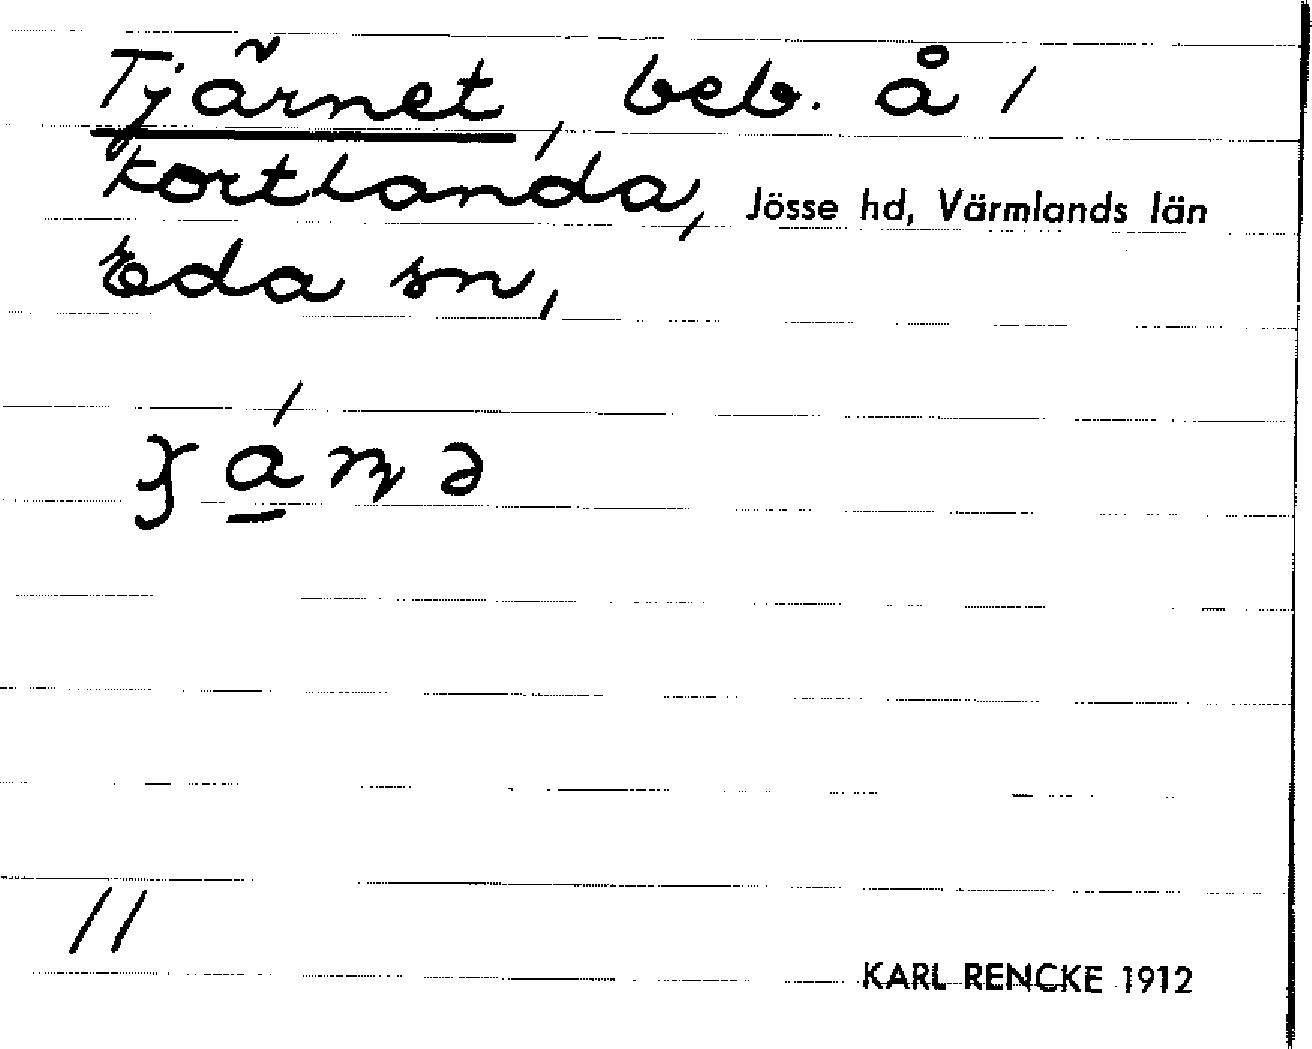 Tjärnet, beb. å /
Kortlanda, Jösse hd, Värmlands län
Eda sn,
11
KARL RENCKE 1912